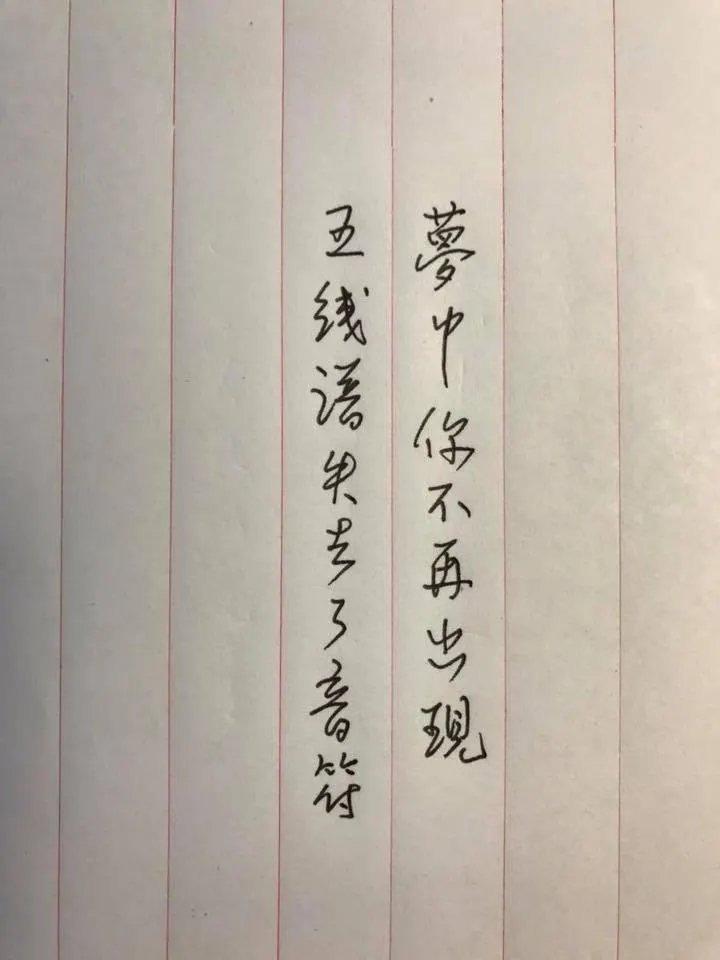 夢中你不再出現
五线谱失去了音符